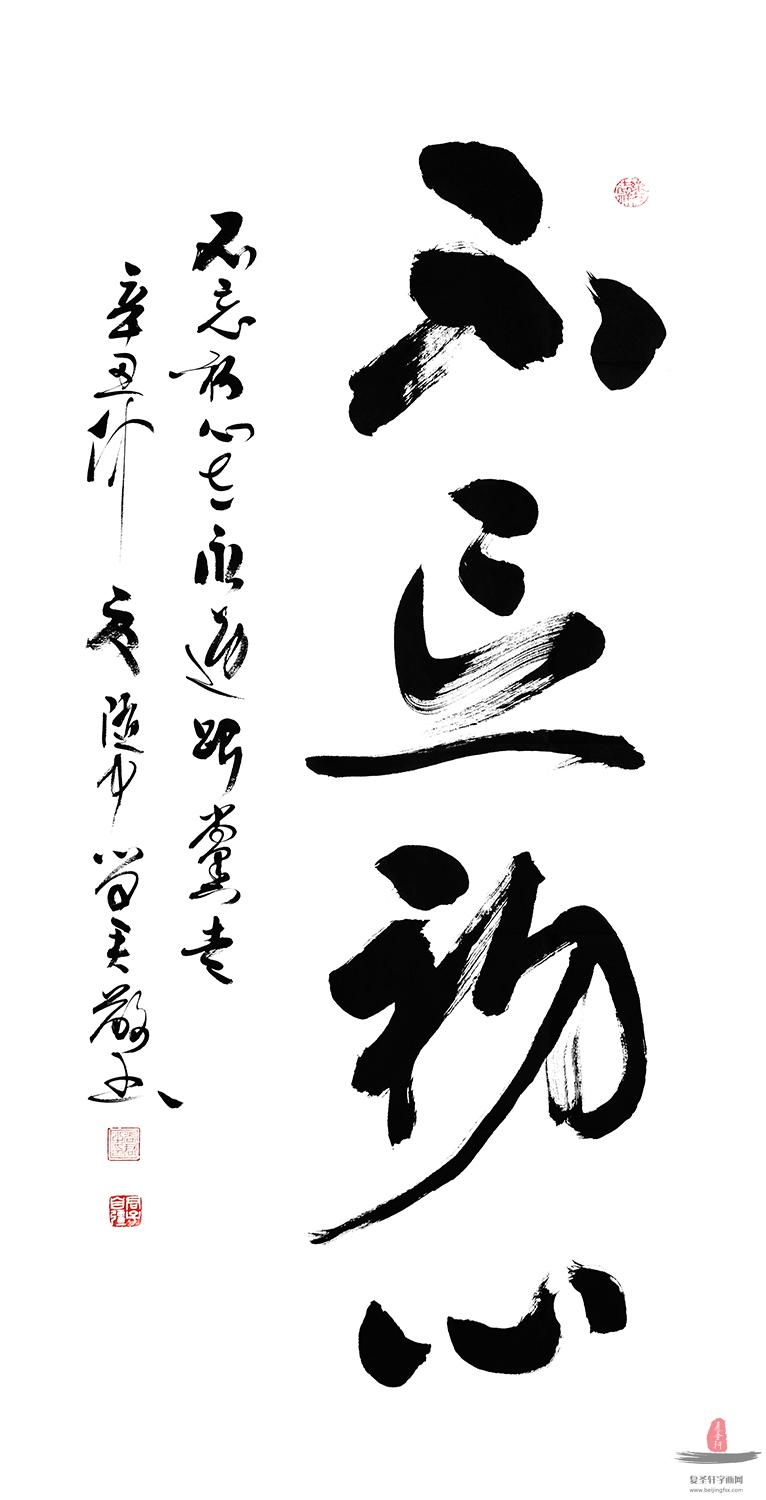 不忘初心
不忘初心永遠跟黨走
辛丑仲夏敬书
复圣轩字画网
www.beijingfsx.com